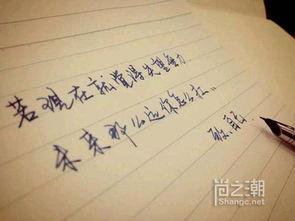 若现在就觉得失望无力
未来那么远你怎么扛
尚之潮
Shangc.net